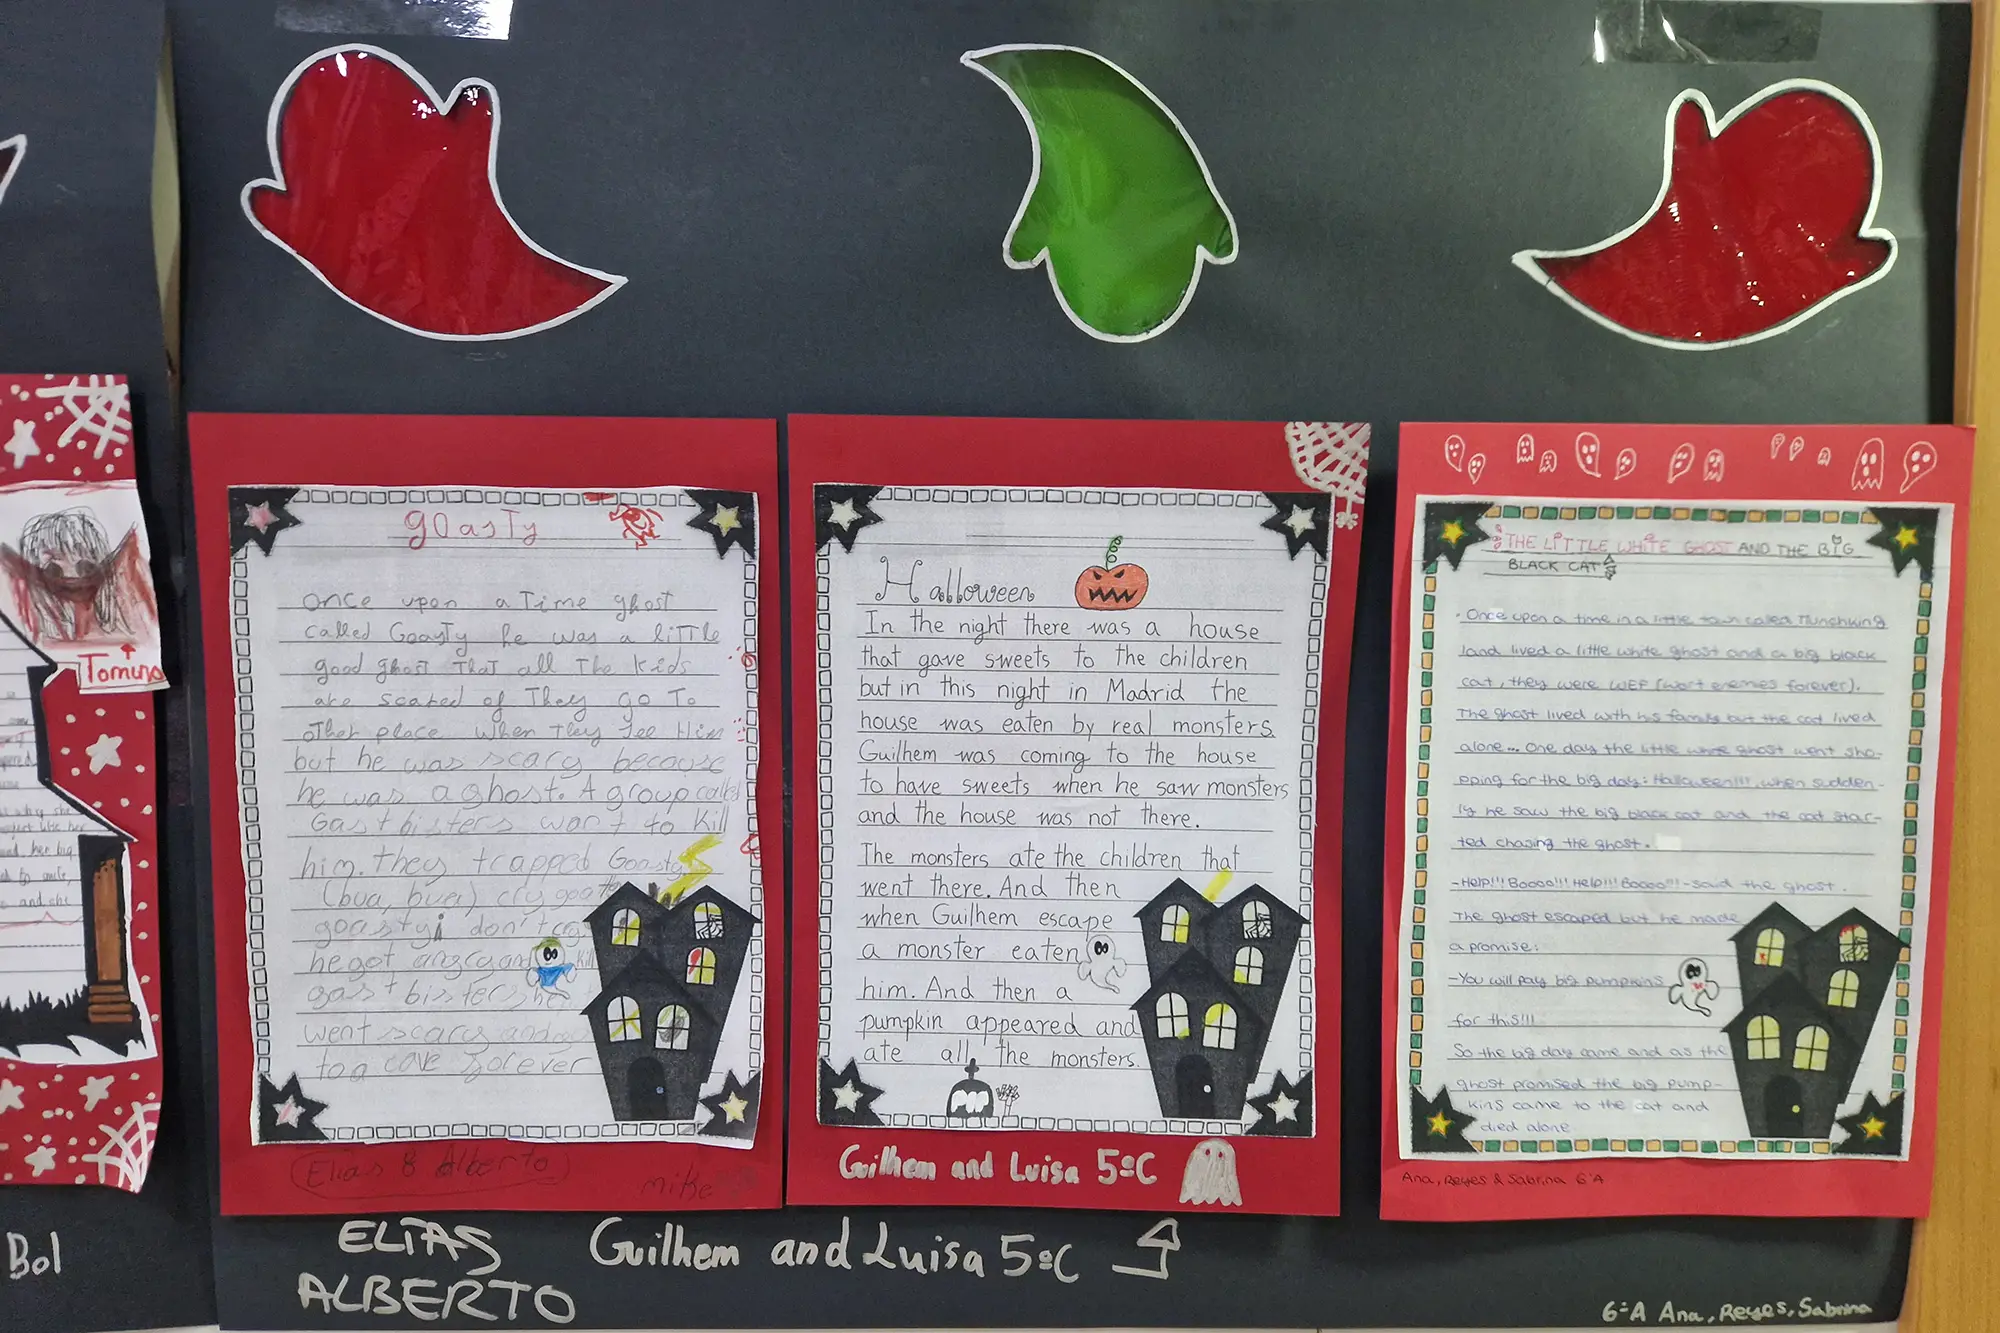 Tomino
Bol
gOasTy
once upon a Time ghost
called Goasty he was a liTTle
good ghosT ThaT all The kids
are scared of They go To
oTher place when They see Him
but he was scary because
he was a ghost. A group called
Gast bisters want to Kill
him. they trapped Goasty
(bua, bua) cry goa
goasty don't cry
he got angry and Kill
gast bisters he
went scary and
to a cave forever
Elias & Alberto
mike
ELIAS
ALBERTO
Halloween
In the night there was a house
that gave sweets to the children
but in this night in Madrid the
house was eaten by real monsters.
Guilhem was coming to the house
to have sweets when he saw monsters
and the house was not there.
The monsters ate the children that
went there. And then
when Guilhem escape
a monster eaten
him. And then a
pumpkin appeared and
ate all the monsters.
RIP
Guilhem and Luisa 5ºC
Guilhem and Luisa 5ºC
THE LITTLE WHITE GHOST AND THE BIG
BLACK CAT
Once upon a time in a little town called Munchking
land lived a little white ghost and a big black
cat, they were WEF (worst enemies forever).
The ghost lived with his family but the cat lived
alone... One day the little white ghost went sho-
pping for the big day: Halloween!!!, when sudden-
ly he saw the big black cat and the cat star-
ted chasing the ghost.
-Help!!! Boooo!!! Help!!! Boooo!!! - said the ghost.
The ghost escaped but he made
a promise:
-You will pay big pumpkins
for this!!!
So the big day came and as the
ghost promised the big pump-
kins came to the cat and
died alone
Ana, Reyes & Sabrina 6ºA
6ºA Ana, Reyes, Sabrina